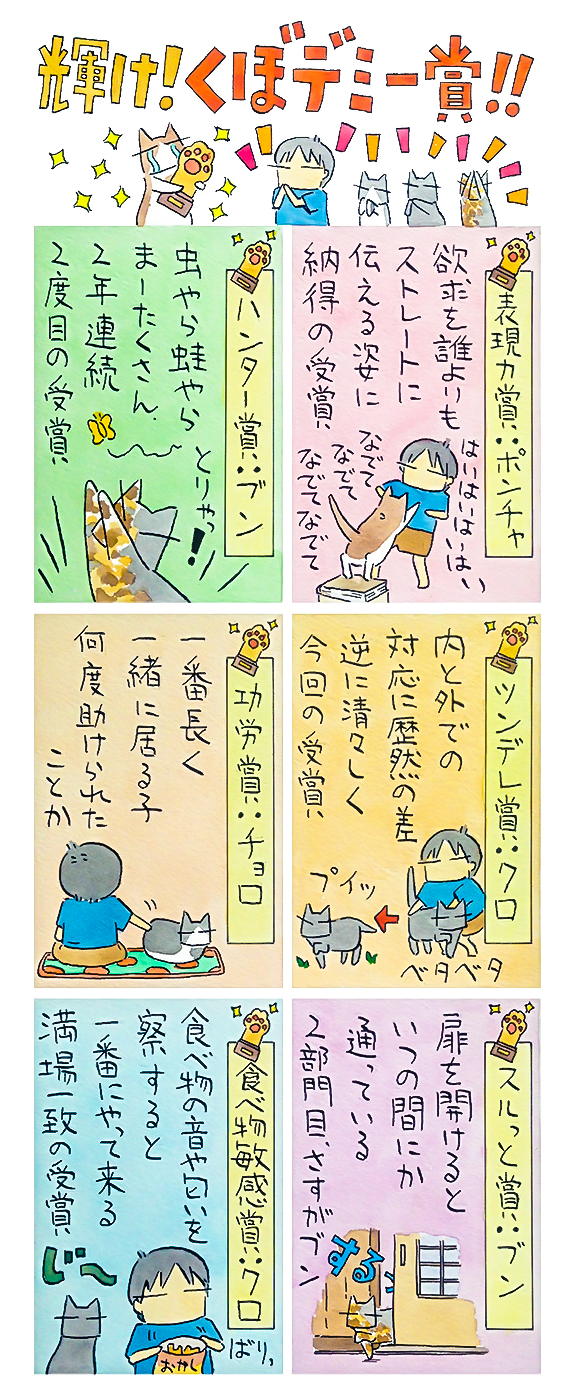 輝け!くぼデミー賞!!
表現力賞:ポンチャ
欲求を誰よりも
ストレートに
伝える姿に
納得の受賞
はいはいはいはい
なでて
なでて
なでてなでて
ハンター賞:ブン
虫やら蛙やら
まーたくさん
2年連続
2度目の受賞
とりゃっ!
ツンデレ賞:クロ
内と外での
対応に歴然の差
逆に清々しく
今回の受賞
プイッ
ベタベタ
功労賞:チョロ
一番長く
一緒に居る子
何度助けられた
ことか
スルっと賞:ブン
扉を開けると
いつの間にか
通っている
2部門目、さすがブン
する
食べ物敏感賞:クロ
食べ物の音や匂いを
察すると
一番にやって来る
満場一致の受賞
じ〜
おかし
ばりっ